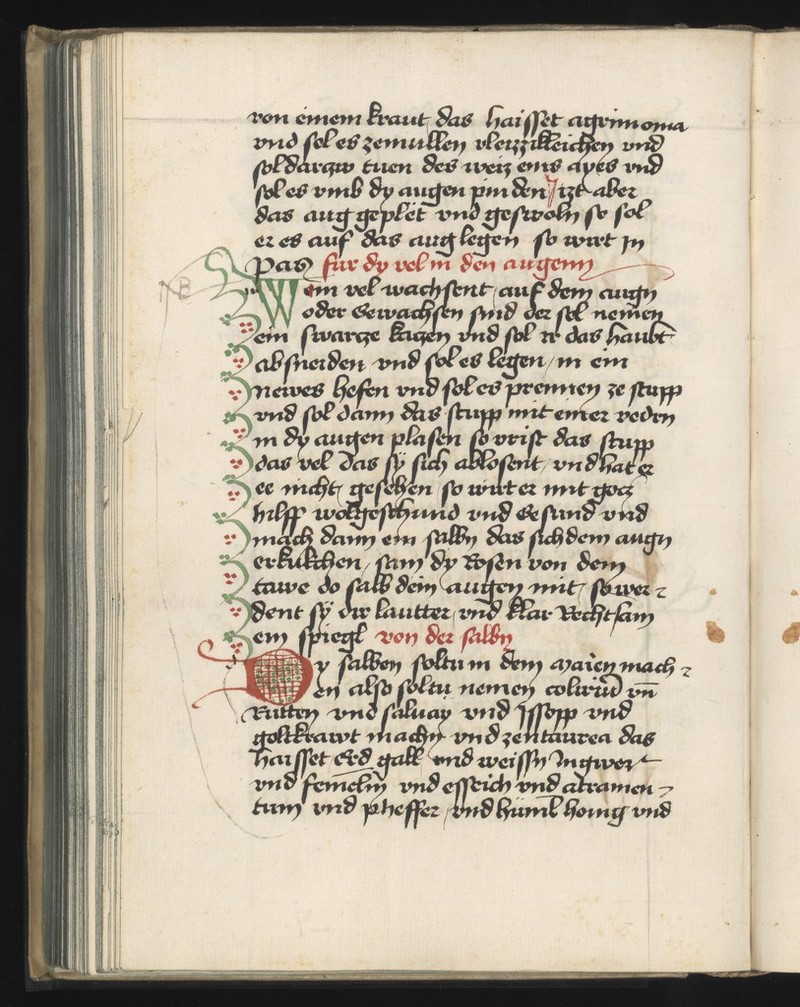 von einem kraut das haisset agrimonia
vnd sol es zemullen vleizzikleichen vnd
sol darzw tuen des weiz eins ayes vnd
sol es vmb dy augen pinden Jzt aber
das aug geplet vnd geswoln so sol
er es auf das aug legen so wirt Jm
Pas fur dy vel in den augenn
NB
Wem vel wachsent auf dem augn
oder Gewachsen sind der sol nemen
ein swarcze kaczen vnd sol ir das haubt
absneiden vnd sol es legen in ein
newes hefen vnd sol es prennen ze stupp
vnd sol dann das stupp mit einer vedrn
in dy augen plasen so vrist das stupp
das vel das sy sich ablosent vnd hat er
ee nicht gesehen so wirt er mit gocz
hilff wolgeschund vnd Gesund vnd
mach dann ein salbn das sich dem augn
erkukchen sam dy Rosen von dem
tawe do salb dein augen mit so wer⸗
dent sy dir lautter vnd klar Recht sam
ein spiegl von der salbn
Dy salben soltu in dem mayen mach⸗
en also soltu nemen coliriu vn̄
Rutten vnd saluay vnd Jssopp vnd
goltkrawt machn vnd zentaurea das
haisset Erd gall vnd weissn Jngwer
vnd femelin vnd esseich vnd atramen⸗
tum vnd pheffer vnd hunil honig vnd